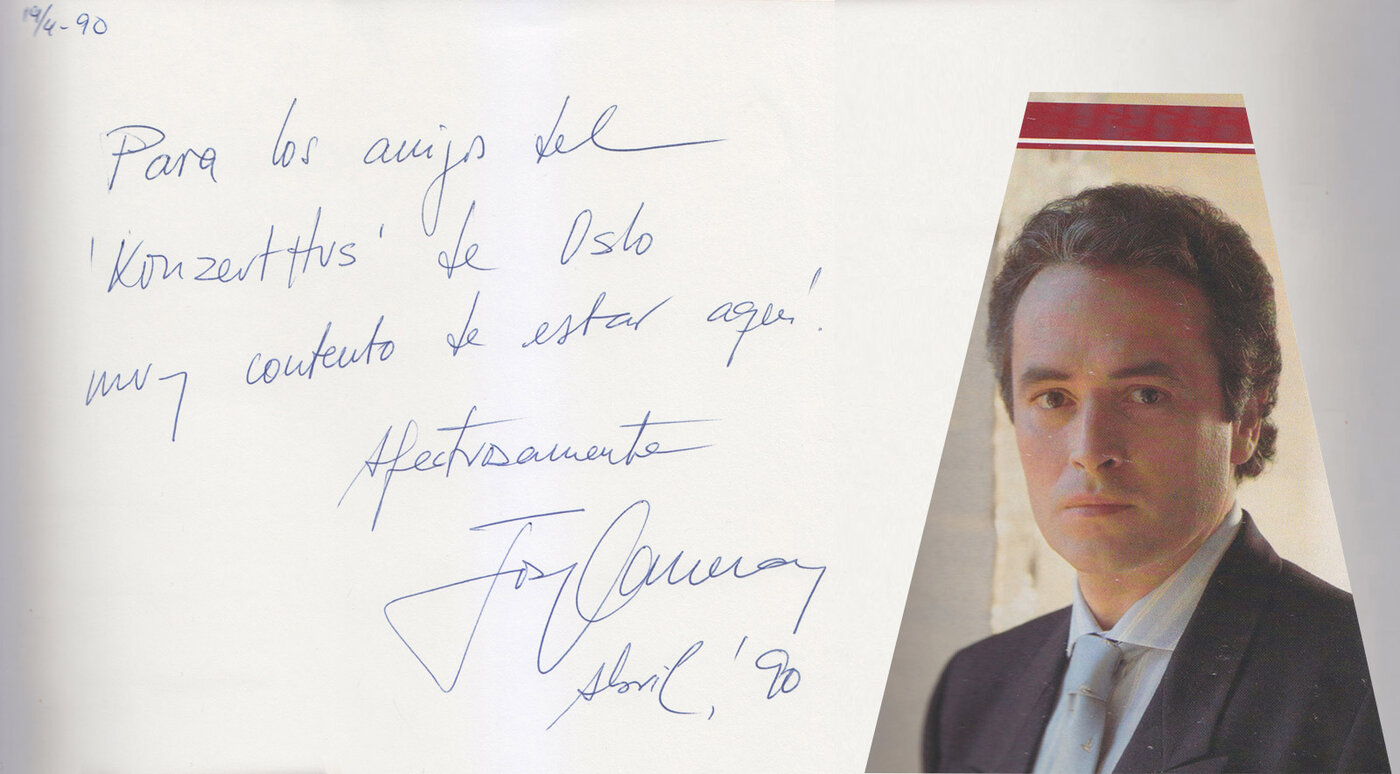 19/4-90
Para los amigos del
'Konzert Hus' de Oslo
muy contento de estar aquí!
Afectuosamente
Josep Carreras
Abril, '90